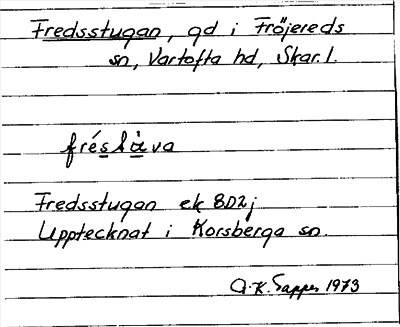 Fredsstugan, gd i Fröjereds
sn, Vartofta hd, Skar. l.
Fredsstugan ek 8D2j
Upptecknat i Korsberga sn.
1973